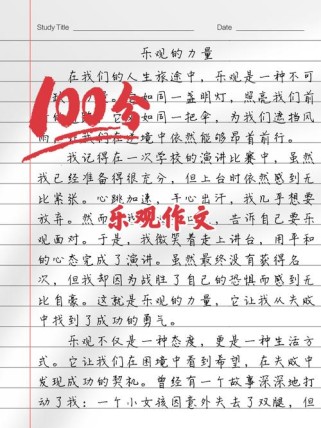 Study Title
Date
乐观的力量
在我们的人生旅途中，乐观是一种不可
如同一盏明灯，照亮我们前
如同一把伞，为我们遮挡风
境中依然能够昂首前行。
100分
我记得在一次学校的演讲比赛中，虽然
我已经准备得很充分，但上台时依然感到无
比紧张。心跳加速，手心出汗，我几乎想要
放弃。然而
告诉自己要乐
乐观作文
观面对。于是，我微笑着走上讲台，用平和
的心态完成了演讲。虽然最终没有获得名
次，但我却因为战胜了自己的恐惧而感到无
比自豪。这就是乐观的力量，它让我从失败
中找到了成功的勇气。
乐观不仅是一种态度，更是一种生活方
式。它让我们在困境中看到希望，在失败中
发现成功的契机。曾经有一个故事深深地打
动了我：一个小女孩因意外失去了双腿，但